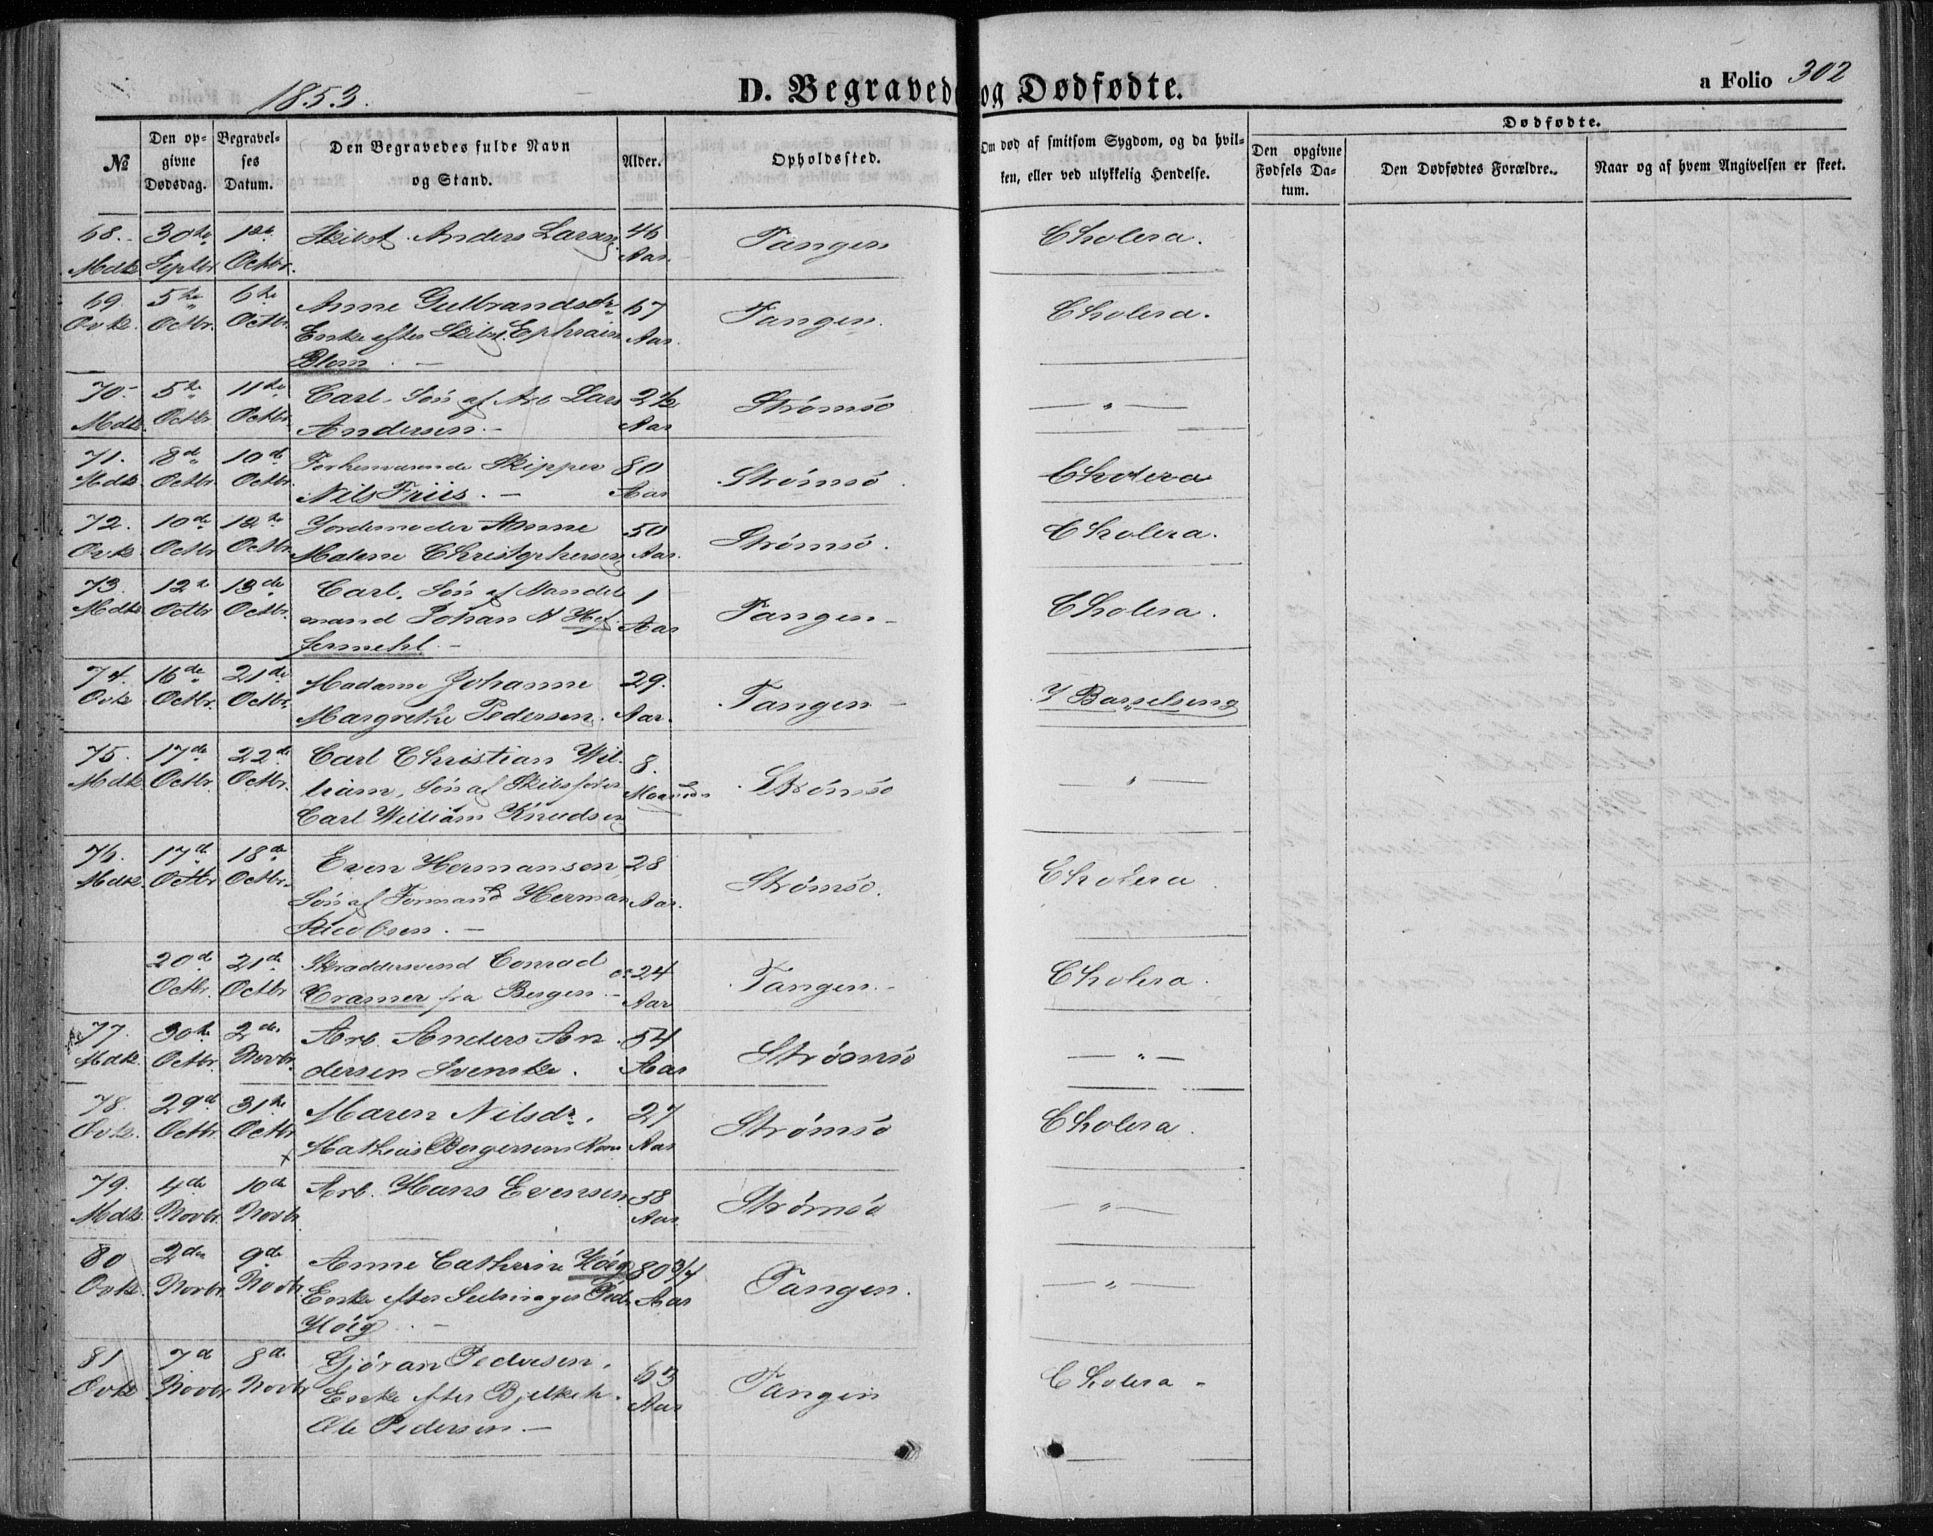 1853.
D. Begravede og Dødfødte.
a Folio 302
№
Den opgivne Dødsdag.
Begravelses Datum.
Den Begravedes fulde Navn og Stand.
Alder.
Opholdssted.
Om død af smitsom Sygdom, og da hvilken, eller ved ulykkelig Hendelse.
Dødfødte.
Den opgivne Fødsels Datum.
Den Dødfødtes Forældre.
Naar og af hvem Angivelsen er skeet.
68. 30te 1ste Skibst. Anders Larsen 46 Tangen Cholera.
Mdk. Septbr. Octbr. Aar.
69. 5te 6te Anne Gulbrandsdr. 67 Tangen. Cholera.
Qvk. Octbr. Octbr. Enke efter Skibst. Ephraim Aar.
Blom. —
70. 5te 11te Carl. Søn af Arb. Lars 2½ Strømsø — " —
Mdk. Octbr. Octbr. Andersen. — Aar
71. 8de 10de Forhenværende Skipper 80 Strømsø. Cholera
Mdk. Octbr. Octbr. Nils Friis. — Aar
72. 10de 12te Jordemoder Anne 50 Strømsø. Cholera.
Qvk. Octbr. Octbr. Malene Christophersen Aar.
73. 12te 13de Carl. Søn af Handels 1 Tangen — Cholera.
Mdk. Octbr. Octbr. mand Johan N Hef Aar
fermehl. —
74. 16de 21de Madame Johanne 29. Tangen — I Barselseng
Qvk Octbr. Octbr. Margrethe Pedersen. Aar.
75. 17de 22de Carl Christian Wil 8. Strømsø — " —
Mdk. Octbr. Octbr. liam, Søn af Skibsfører Maaneder
Carl William Knudsen
76. 17de 18de Even Hermansen 28 Strømsø. Cholera.
Mdk. Octbr. Octbr. Søn af Formand Herman Aar.
Jacobsen. —
20de 21de Skræddersvend Conrad 24 Tangen. — Cholera.
Octbr. Octbr. Cramer fra Bergen. — Aar
77. 30te 2den Arb. Anders An 54 Strømsø — " —
Mdk. Octbr. Novbr. dersen Svenske. Aar
78. 29de 31te Maren Nilsdr. 27 Strømsø Cholera.
Qvk. Octbr. Octbr. Mathias Borgersens Kone Aar
79. 4de 10de Arb. Hans Evensen 58 Strømsø — " —
Mdk. Novbr. Novbr. Aar
80 2den 9de Anne Cathrine Höeg 80 3/4 Tangen. — " —
Qvk. Novbr. Novbr. Enke efter Seilmager Peder Aar
Höeg. —
81 7de 8de Gjöran Pedersen. 63 Tangen Cholera —
Qvk. Novbr. Novbr. Enke efter Bjelkeh. Aar
Ole Pedersen —